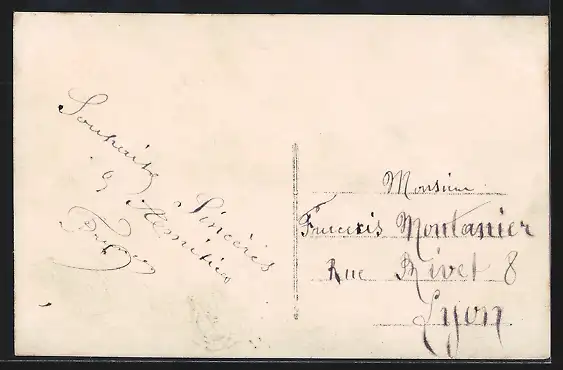 Souhaits
Sincères
& Amitiés
Monsieur
Francis Montanier
Rue Rivet 8
Lyon